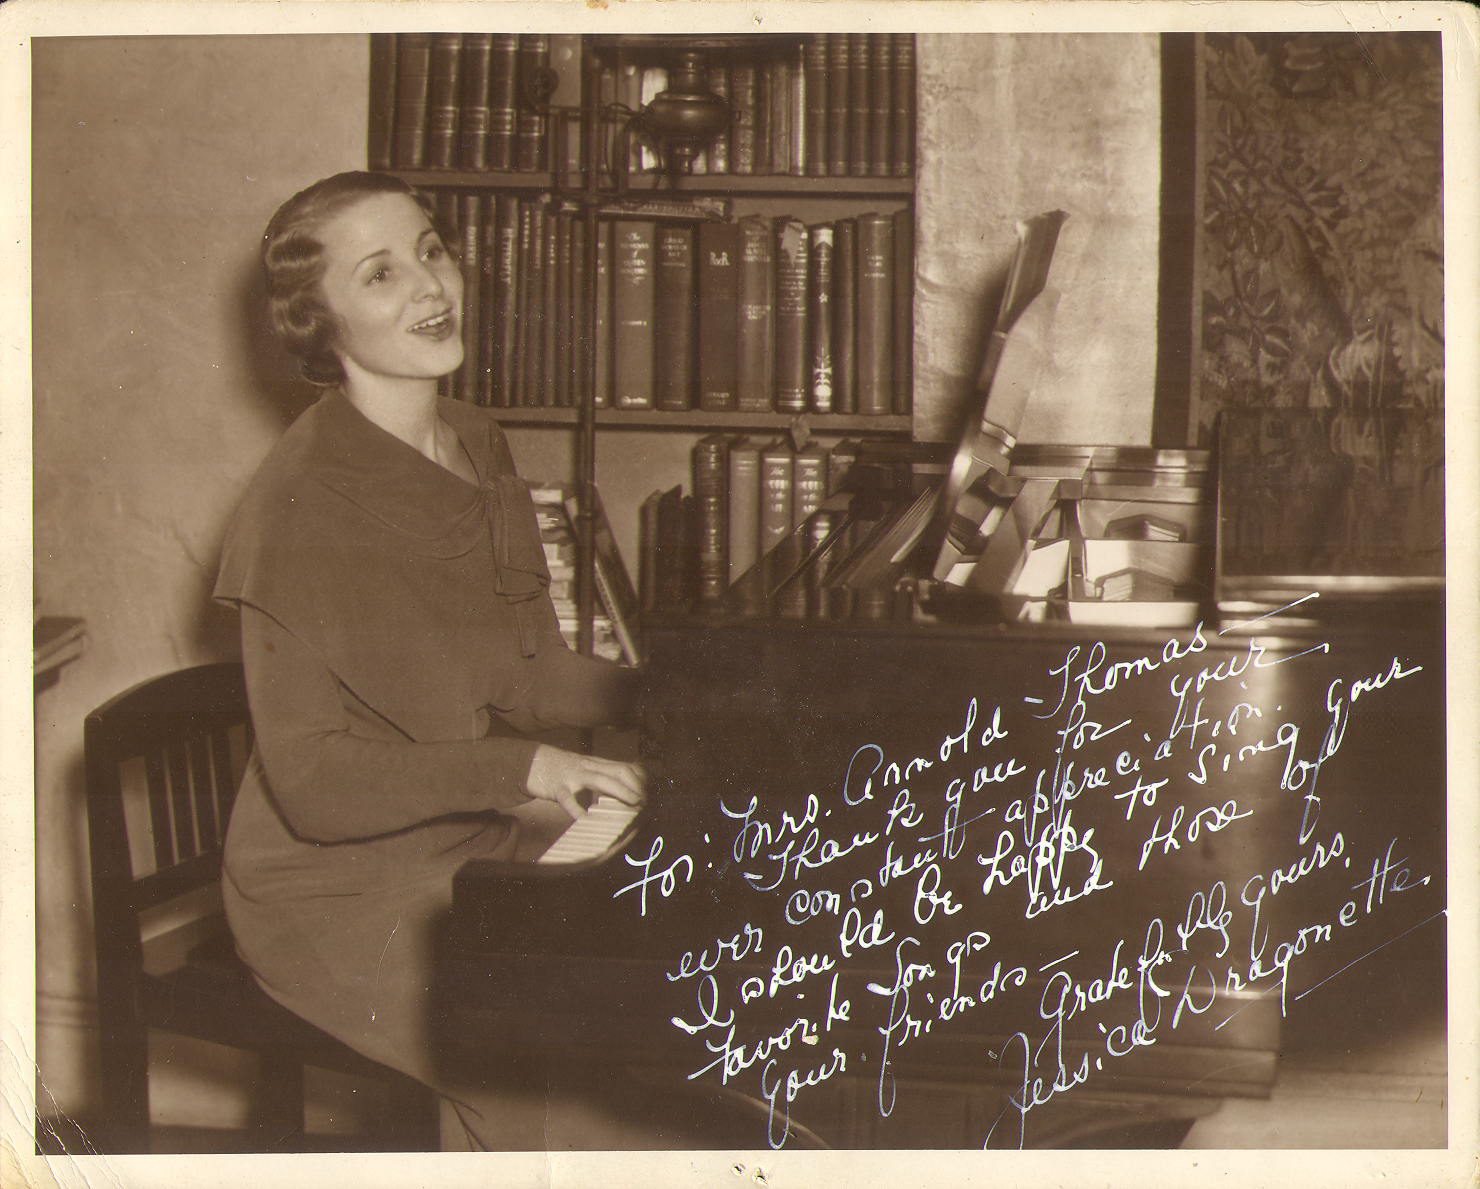 R
R
The
The
For: Mrs. Arnold Thomas—
Thank you for your
ever constant appreciation.
I should be happy to sing your
favorite songs and those of
your friends—
Gratefully yours,
Jessica Dragonette.